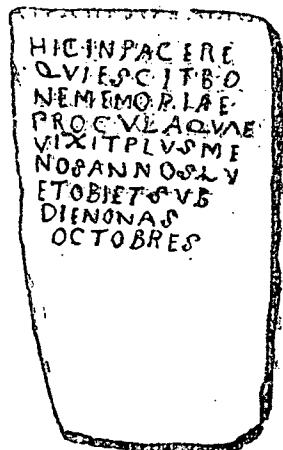 HIC IN PACE RE
QVIESCIT BO
NE MEMORIAE
PROCVLA QVAE
VIXIT PLVS ME
NOS ANNOS LV
ET OBIET SVB
DIE NONAS
OCTOBRES